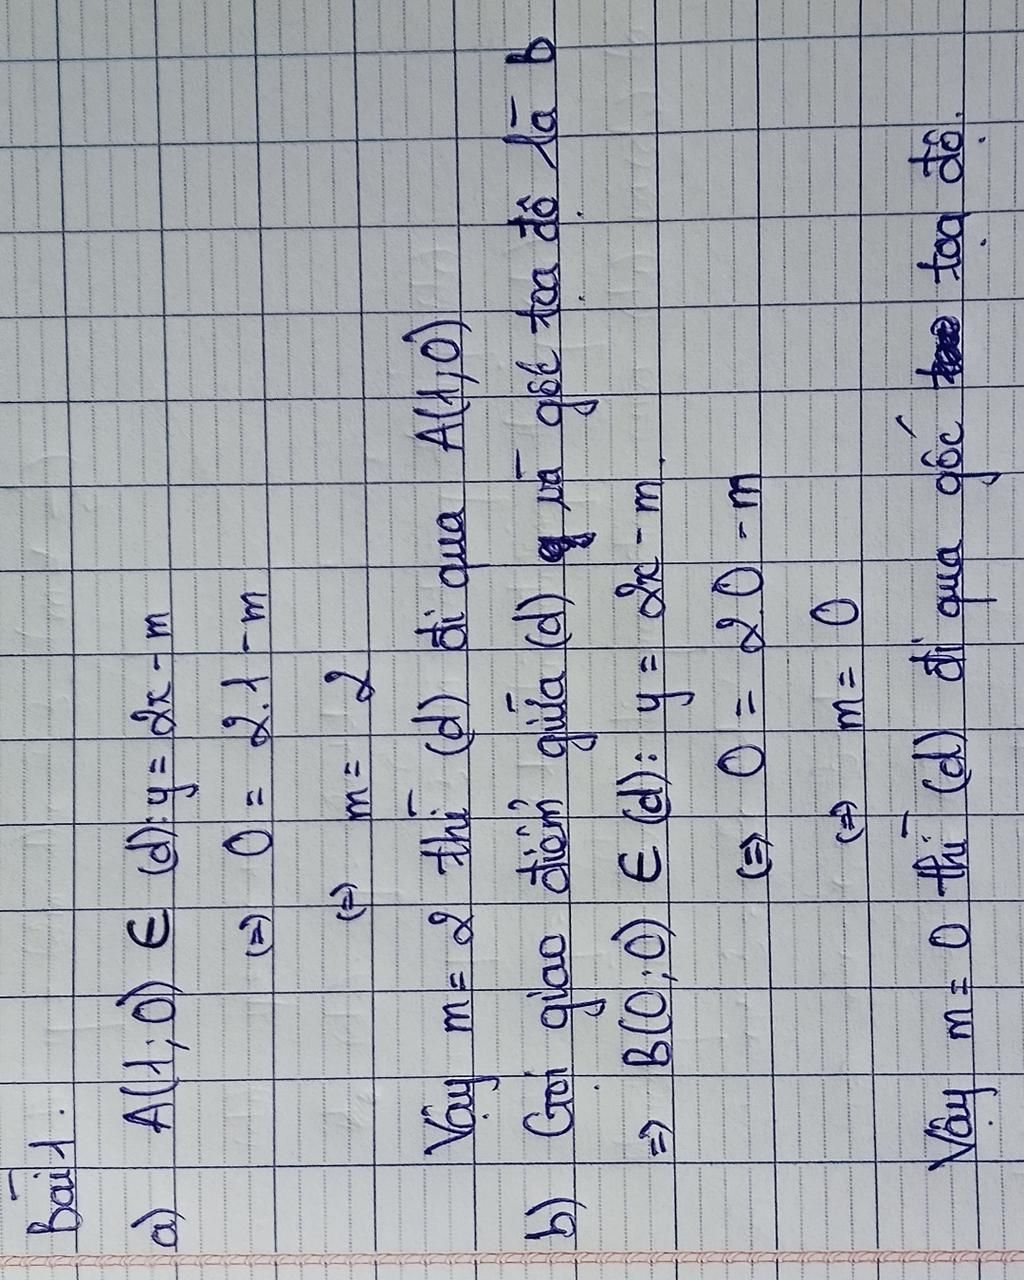 Bài 1.
a) A(1;0) ∈ (d): y = 2x - m
(=) 0 = 2.1 - m
(=) m = 2
Vậy m = 2 thì (d) đi qua A(1;0)
b) Gọi giao điểm giữa (d) và gốc tọa độ là b
=) B(0;0) ∈ (d): y = 2x - m.
(=) 0 = 2.0 - m
(=) m = 0
Vậy m = 0 thì (d) đi qua gốc tọa độ.